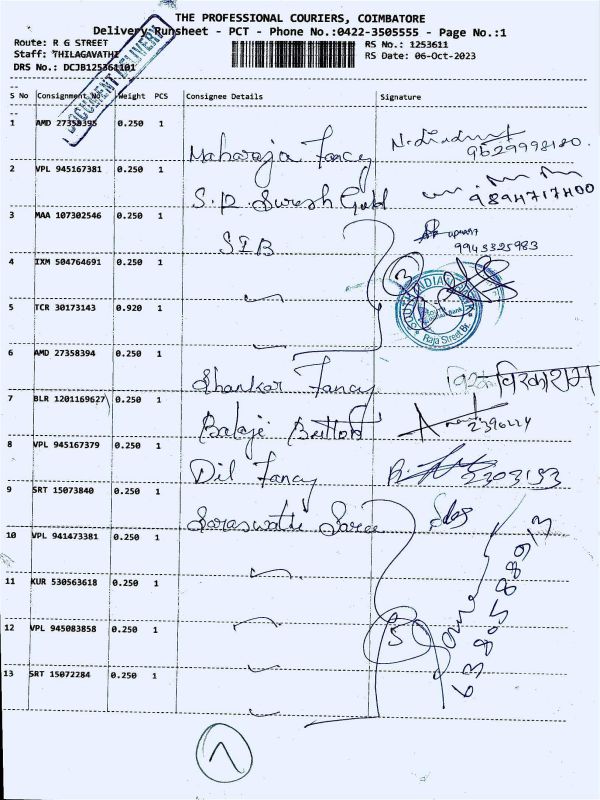 THE PROFESSIONAL COURIERS, COIMBATORE
Delivery Runsheet - PCT - Phone No.:0422-3505555 - Page No.:1
Route: R G STREET RS No.: 1253611
Staff: THILAGAVATHI RS Date: 06-Oct-2023
DRS No.: DCJB125361101
DOCUMENT DELIVERY
S No Consignment No. Weight PCS Consignee Details Signature
1 AMD 27358395 0.250 1 Maharaja Fancy 9629998180.
2 VPL 945167381 0.250 1 S.R. Suresh Gold 9894717400
3 MAA 107302546 0.250 1 SIB 9943325983
4 IXM 504764691 0.250 1
SOUTH INDIAN BANK
Raja Street Br.
5 TCR 30173143 0.920 1
6 AMD 27358394 0.250 1 Shankar Fancy
7 BLR 1201169627 0.250 1 Balaji Button 2396224
8 VPL 945167379 0.250 1 Dil Fancy 2303153
9 SRT 15073840 0.250 1 Saraswathi Saree
10 VPL 941473381 0.250 1
11 KUR 530563618 0.250 1 6380588913
12 VPL 945083858 0.250 1 5
13 SRT 15072284 0.250 1